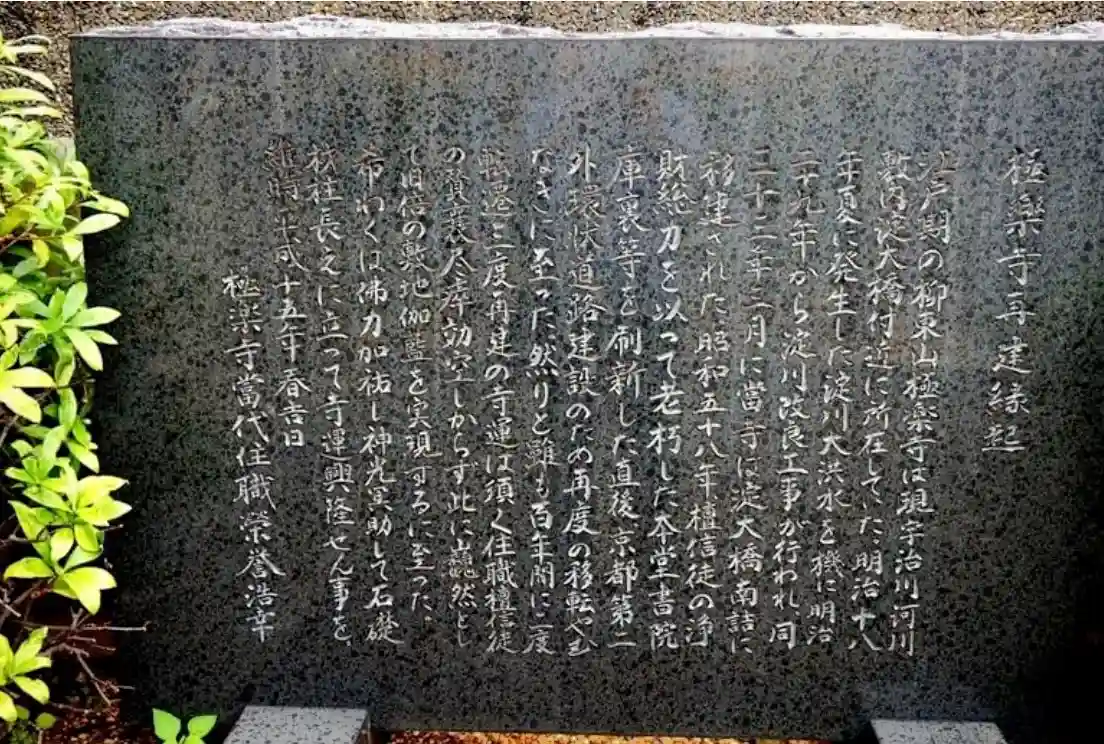 極楽寺再建縁起
江戸期の柳東山極楽寺は現宇治川河川
敷内淀大橋付近に所在していた明治十八
年夏に発生した淀川大洪水を機に明治
二十九年から淀川改良工事が行われ、同
三十二年二月に當寺は淀大橋南詰に
移建された昭和五十八年、檀信徒の浄
財総力を以って老朽した本堂書院
庫裏等を刷新した直後、京都第二
外環状道路建設のため再度の移転やむ
なきに至った然りと雖も百年間に二度
転遷三度再建の寺運は須く住職檀信徒
の賛襄尽瘁効空しからず此に巍然とし
て旧倍の敷地伽藍を実現するに至った。
希わくは佛力加祐し神光冥助して石礎
秘柱長えに立って寺運興隆せん事を
維時平成十五年春吉日
極楽寺當代住職榮誉浩幸